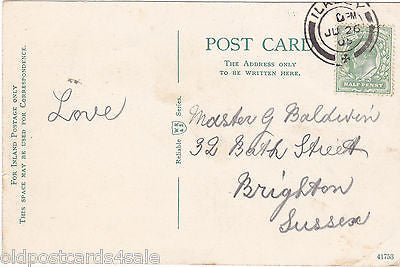 POST CARD
THE ADDRESS ONLY
TO BE WRITTEN HERE.
FOR INLAND POSTAGE ONLY
THIS SPACE MAY BE USED FOR CORRESPONDENCE.
Love
Reliable
Series.
Master G Baldwin
32 Bath Street
Brighton
Sussex
JU 26
HALFPENNY
41753
oldpostcards4sale